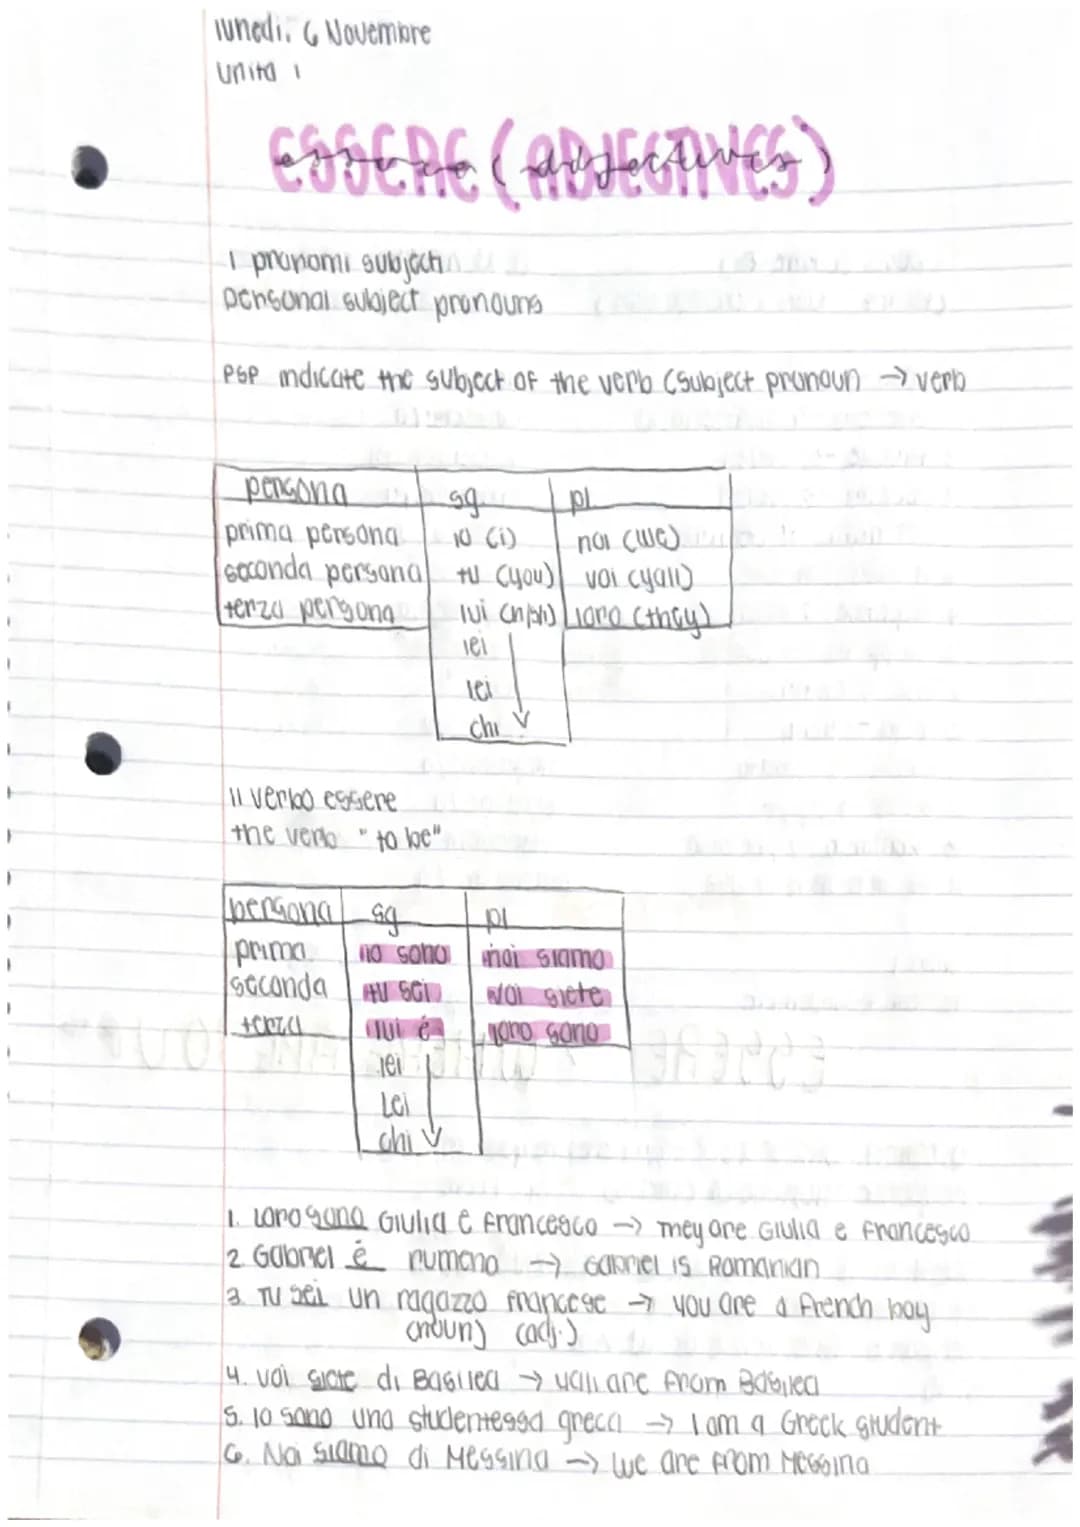 lunedi. 6 Novembre
unita 1
ESSERE (ADJECTIVES)
essere (adjectives)
I pronomi subject
personal subject pronouns
PSP indicate the subject of the verb (subject pronoun → verb
persona sg pl
prima persona io (i) noi (we)
seconda persona tu (you) voi (yall)
terza persona lui (h/s/i) loro (they)
lei
lei
chi
il verbo essere
the verb "to be"
persona sg pl
prima io sono noi siamo
seconda tu sei voi siete
terza lui é loro sono
lei
Lei
chi
1. Loro sono Giulia e Francesco → they are Giulia e Francesco
2. Gabriel é rumeno → Gabriel is Romanian
3. Tu sei un ragazzo francese → you are a French boy
(noun) (adj.)
4. voi siete di Basilea → yall are from Basilea
5. Io sono una studentessa greca → I am a Greek student
6. Noi siamo di Messina → we are from Messina